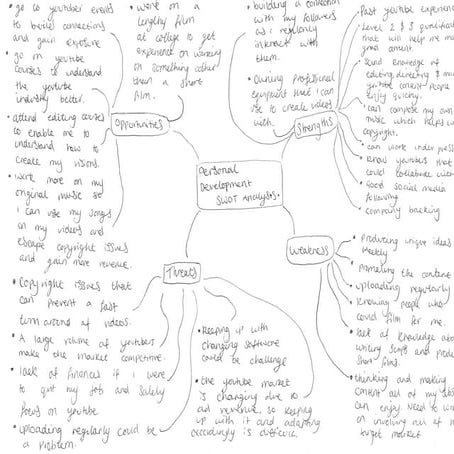 • go to youtube events
to build connections
and gain exposure.
• go on youtube
courses to understand
the youtube
industry better.
• attend editing courses
to enable me to
understand how to
create my visions.
• work more on my
original music so
I can use my songs
on my videos and
escape copyright issues
and gain more revenue.
• work on a
lengthy film
at college to get
experience on working
on something other
than a short
film.
Opportunities
• building a connection
with my followers
as I regularly
interact with
them.
• Owning professional
equipment that I can
use to create videos
with.
Strengths
• Past youtube experience
• Level 2 & 3
that will help me
content
• Sound knowledge of
editing, directing &
youtube content people
enjoy quickly.
• I can compose my own
music which helps with
copyright.
• can work under
• know youtubers that
could collaborate with
• Good social media
following
• company backing
Personal
Development
SWOT Analysis.
Weakness
• Producing unique ideas
weekly
• promoting the content
• uploading regularly
• Knowing people who
could film for me.
• lack of knowledge
writing scripts and
short films.
• thinking and making
content all of my
can enjoy. Need to
on involving all of
target market
Threats
• Copyright issues that
can prevent a fast
turn around of videos.
• A large volume of youtubers
make the market competitive.
• lack of finances if I were
to quit my job and solely
focus on youtube
• uploading regularly could be
a problem.
• keeping up with
changing software
could be challenge
• the youtube market
is changing due to
ad revenue, so keeping
up with it and adapting
accordingly is difficult.